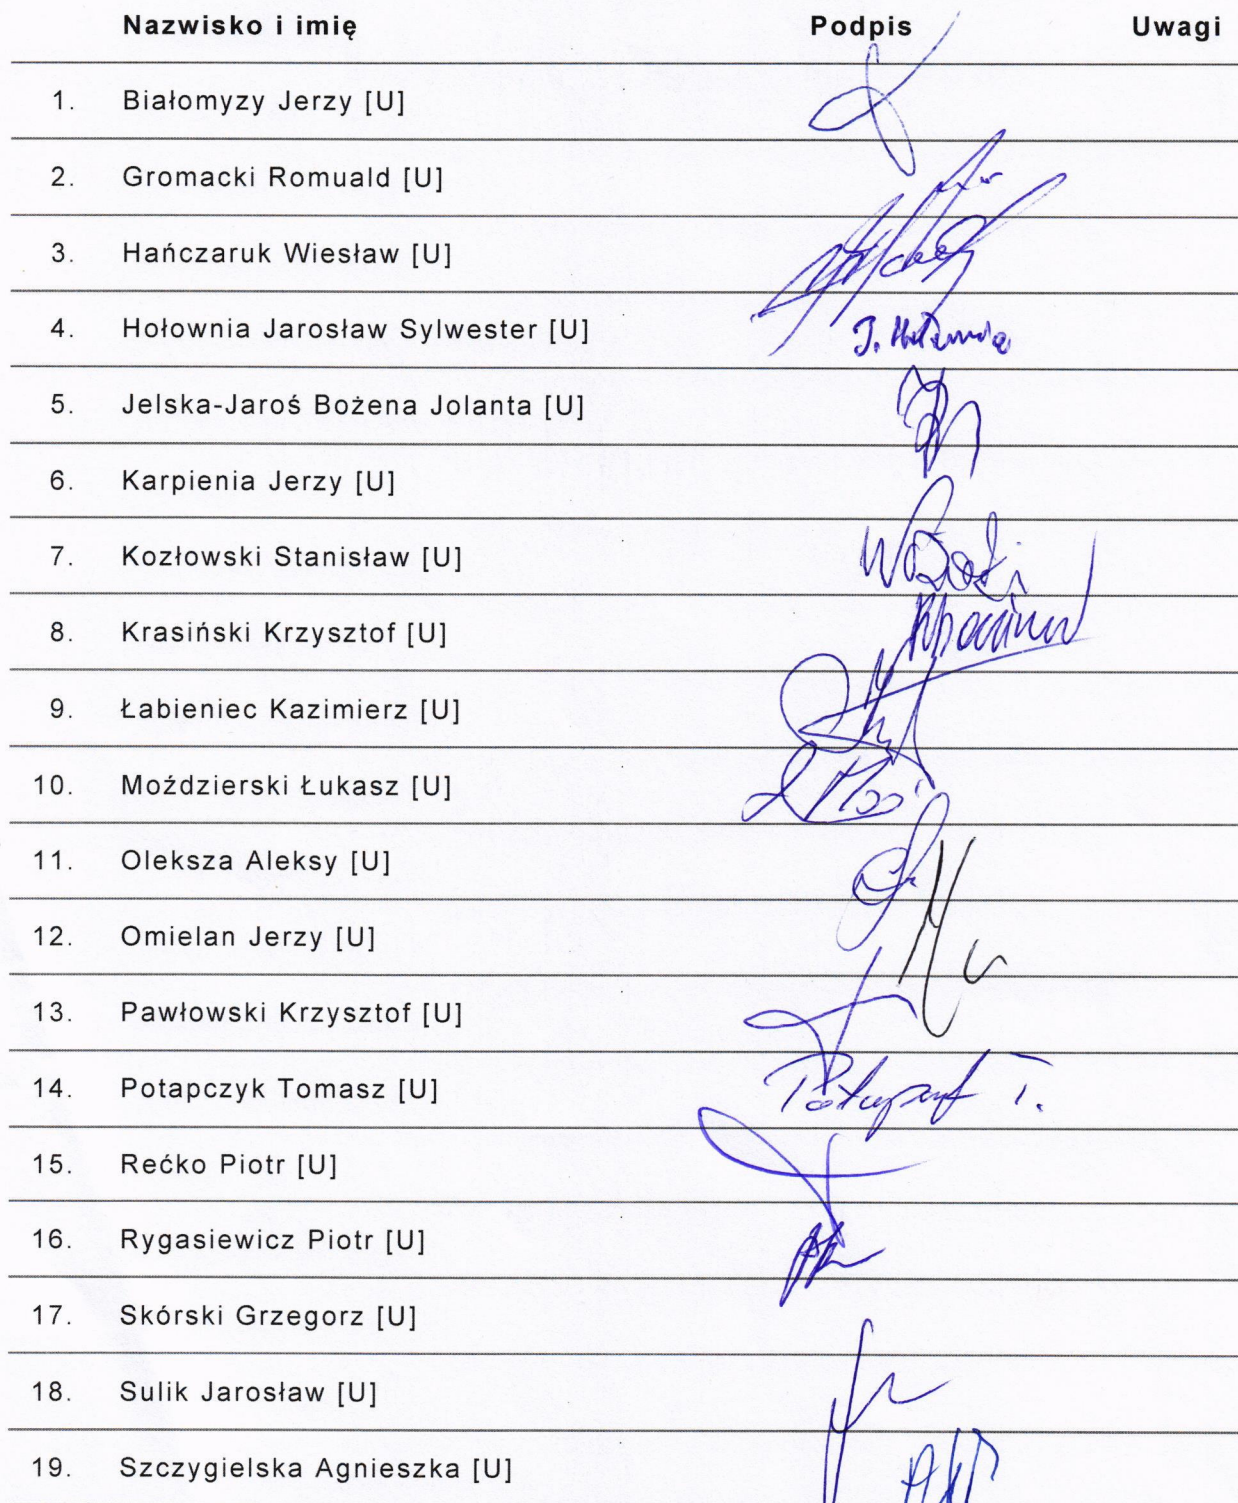 Nazwisko i imię Podpis Uwagi
1. Białomyzy Jerzy [U]
2. Gromacki Romuald [U]
3. Hańczaruk Wiesław [U]
4. Hołownia Jarosław Sylwester [U] J. Hołownia
5. Jelska-Jaroś Bożena Jolanta [U]
6. Karpienia Jerzy [U]
7. Kozłowski Stanisław [U]
8. Krasiński Krzysztof [U]
9. Łabieniec Kazimierz [U]
10. Moździerski Łukasz [U]
11. Oleksza Aleksy [U]
12. Omielan Jerzy [U]
13. Pawłowski Krzysztof [U]
14. Potapczyk Tomasz [U] Potapczyk T.
15. Rećko Piotr [U]
16. Rygasiewicz Piotr [U]
17. Skórski Grzegorz [U]
18. Sulik Jarosław [U]
19. Szczygielska Agnieszka [U]